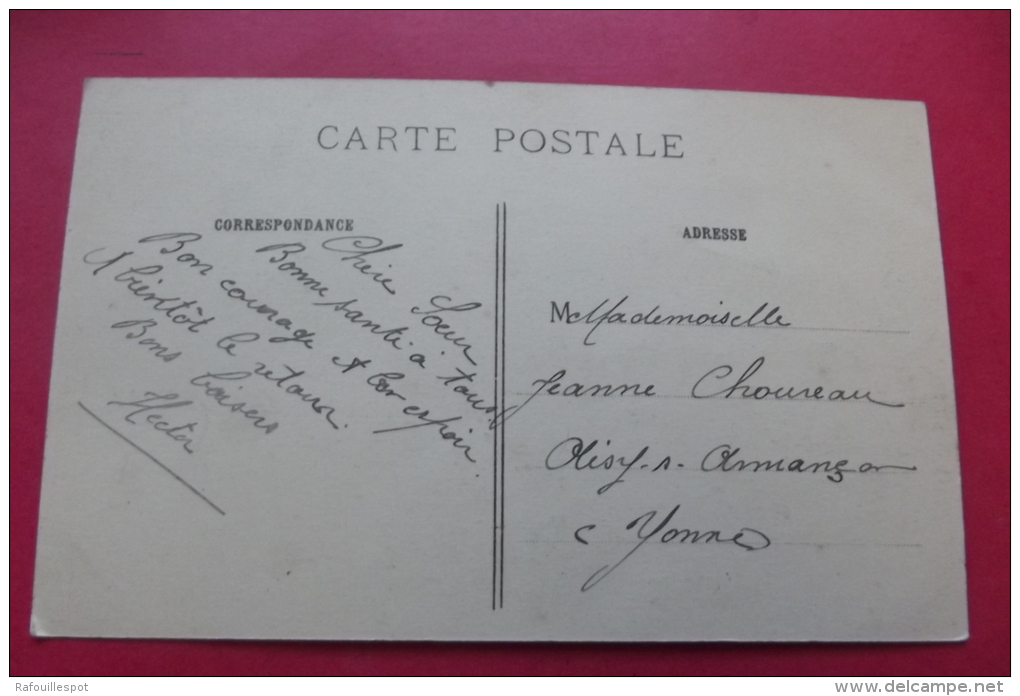 CARTE POSTALE
CORRESPONDANCE
Chère Soeur
Bonne santé à tous
Bon courage et bon espoir.
A bientôt le retour.
Bons baisers
Hector
ADRESSE
M Mademoiselle
Jeanne Choureau
Aisy-s-Armançon
Yonne
Rafouillespot
www.delcampe.net